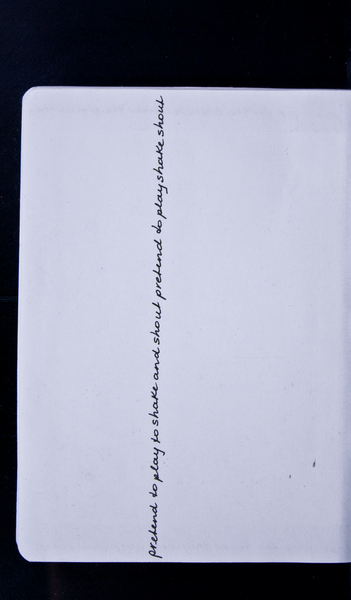 pretend to play to shake and shout pretend to play shake shout